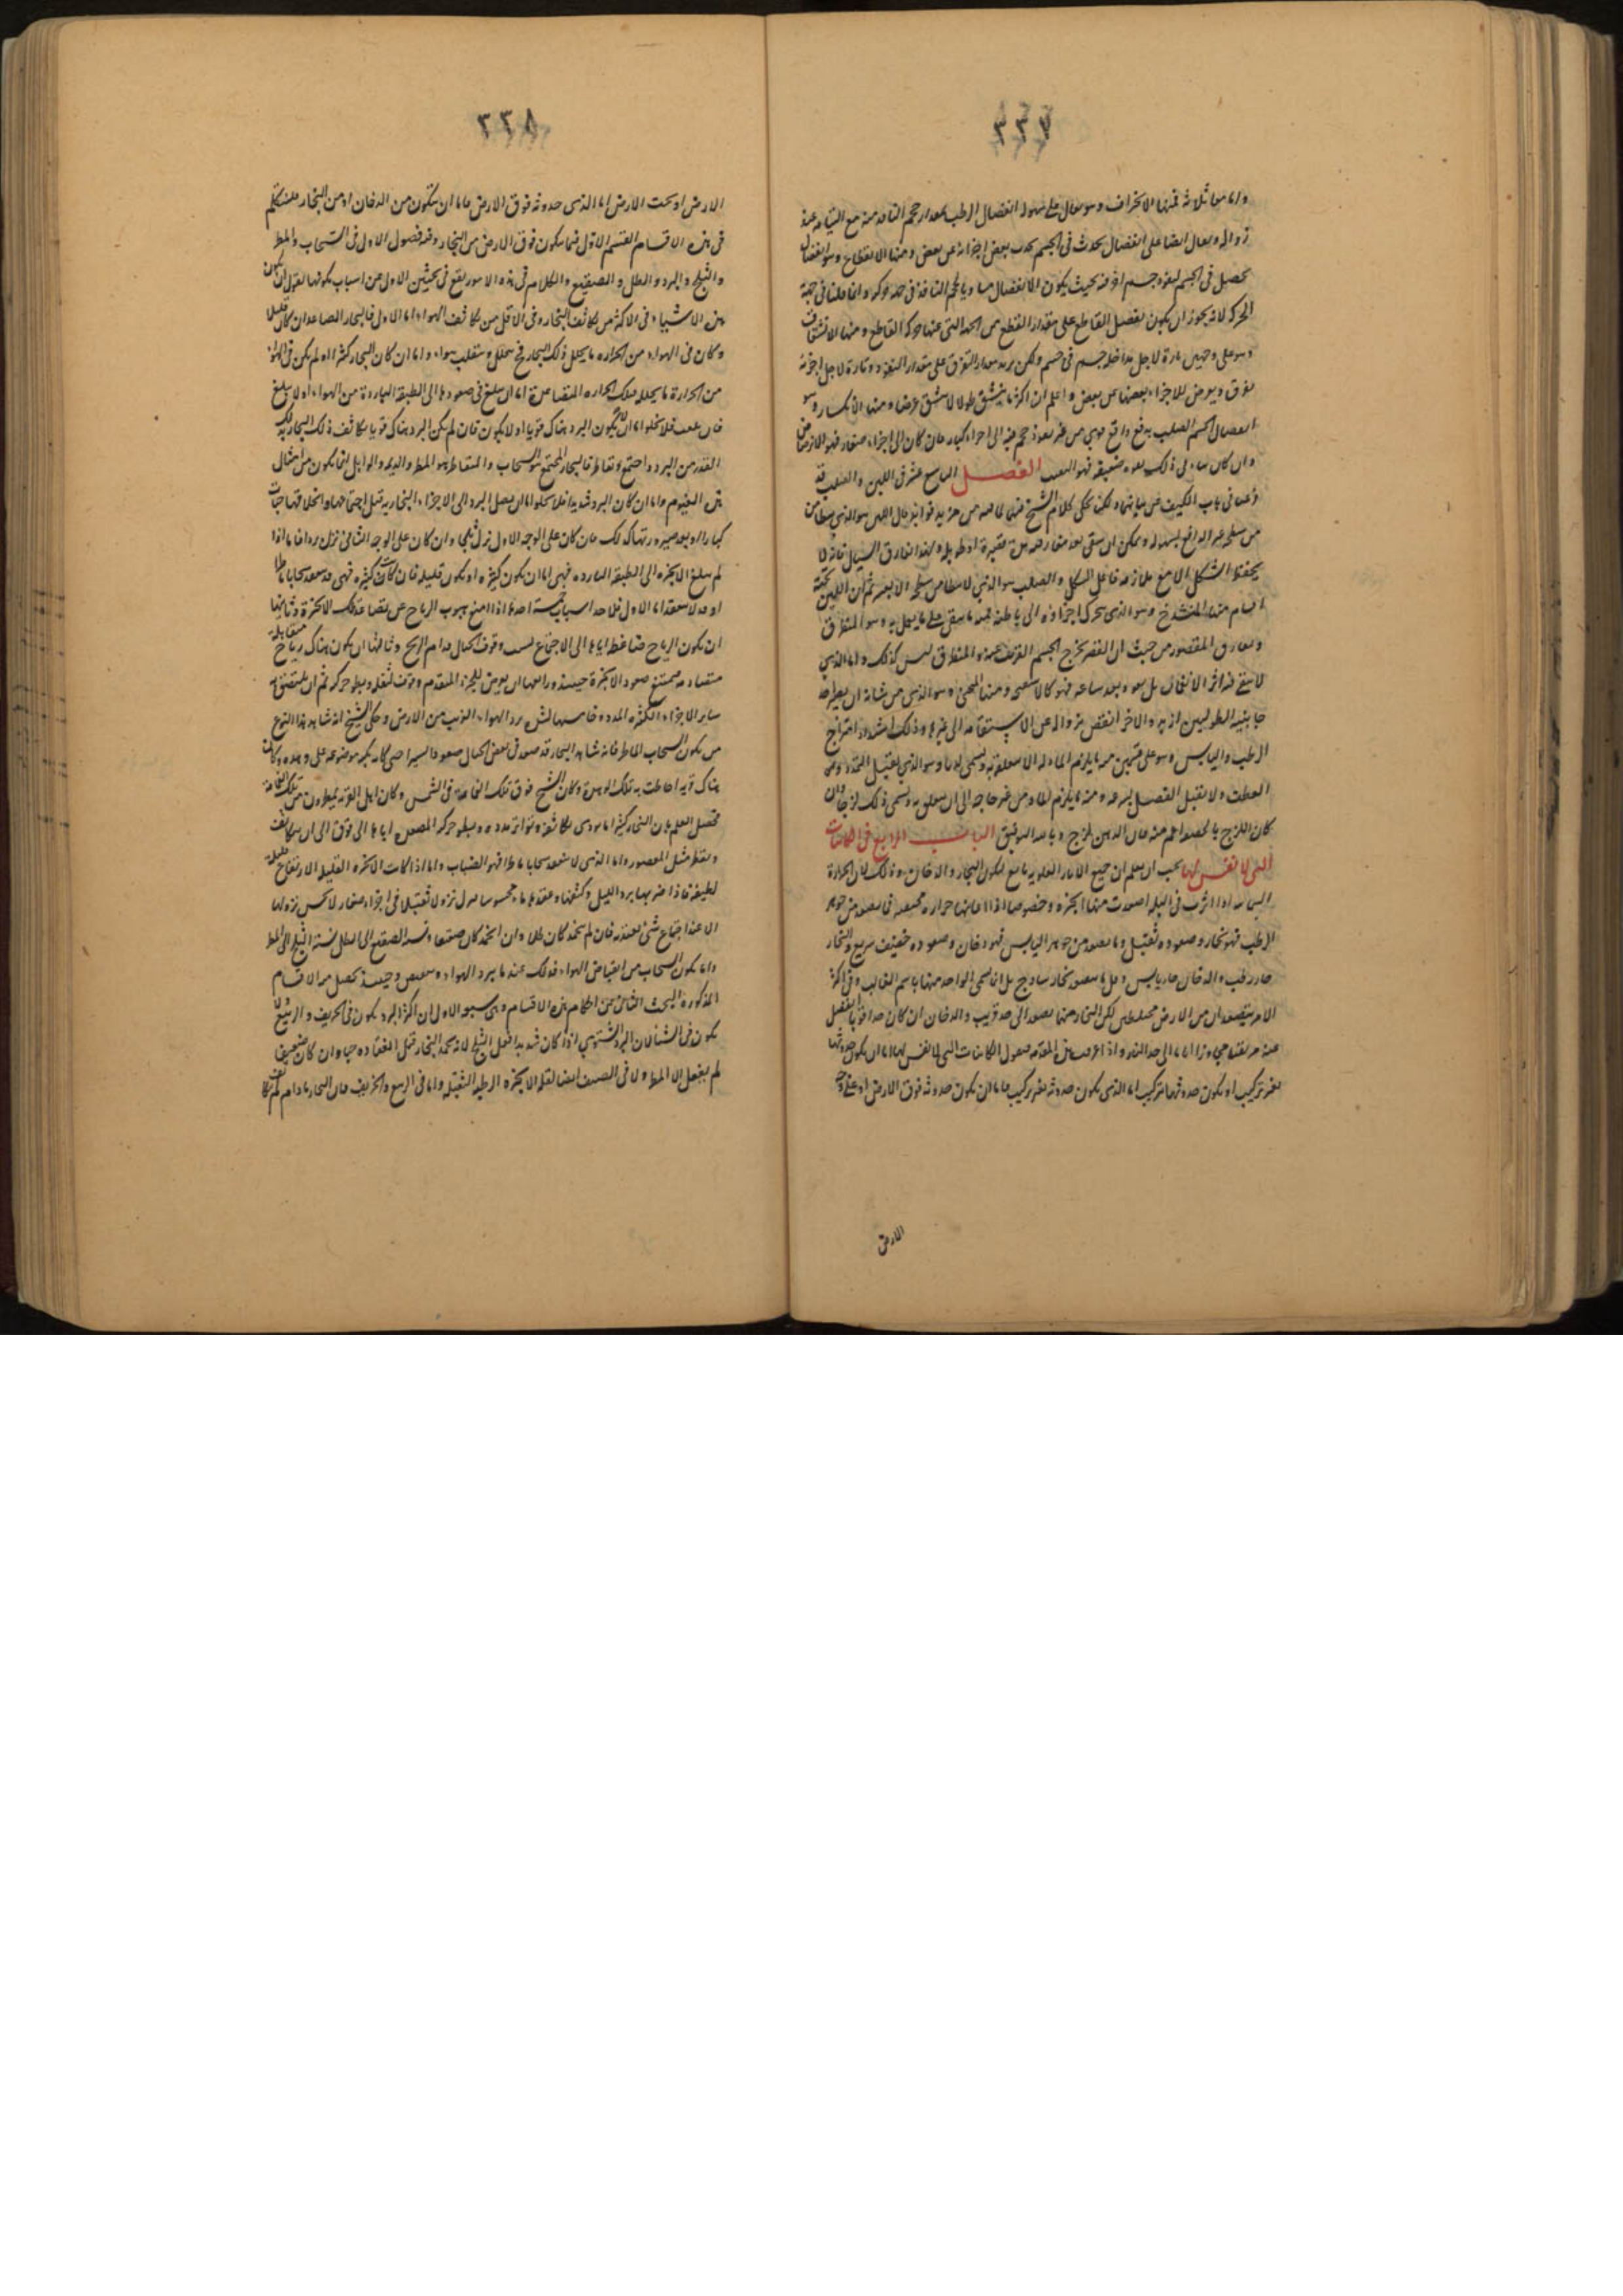 ٣٣٧
وانواعها ثلاثة فمنها الانخراق وهو يقال على سهولة انفصال الرطب بمقدار حجم النافذ منه مع التيامه عند
زواله ويقال ايضا على انفصال يحدث فى الجسم بعض اجزائه عن بعض ومنها الانقطاع وهو انفصال
يحصل فى الجسم لنفوذ جسم اخر فيه بحيث يكون الانفصال مساويا لحجم النافذ فى جهة حركته وانما قلنا فى جهة
الحركة لانه يجوز ان يكون يفصل القاطع على مقدار القطع من الجهة التى عنها حركة القاطع ومنها الانشقاق
وهو على وجهين تارة لاجل مداخلة جسم فى جسم ولكن يزيد مقدار التفرق على مقدار النفوذ وتارة لاجل اجزائه
تفرق ويعرض للاجزاء بعضها عن بعض واعلم ان اكثر ما ينشق طولا لا ينشق عرضا ومنها الانكسار وهو
انفصال الجسم الصلب بدفع دافع قوى من غير نفوذ حجم فيه الى اجزاء كبار فان كان الى اجزاء صغار فهو الارضاض
وان كان ذلك بقوة ضعيفة فهو التفتت الفصل التاسع عشر فى اللين والصلب قد
ذكرنا فى باب الكيف عن ماهيتهما ولكنا نحكى كلام الشيخ
من سطحه عند الدافع بسهولة ويمكن ان يبقى بعد مفارقته مدة قصيرة او طويلة وبهذا يفارق السيال فانه لا
يحفظ الشكل الا مع ملازمة فاعل الشكل والصلب هو الذى لا يتطامن سطحه الا بعسر ثم ان اللين تحته
اقسام منها المنشدخ وهو الذى يتحرك اجزاؤه الى باطنه فمنه ما يبقى على ما يفعل به وهو المنطرق
ويفارق المعصور من حيث ان العصر يخرج الجسم الغريب عنه والمنطرق ليس كذلك واما الذى
لا يبقى فيه اثر الانغماز بل يعود بعد ساعة فهو كالاسفنج ومنها المنحنى وهو الذى من شانه ان يصير احد
جانبيه الطوليين ازيد والاخر انقص بزواله عن الاستقامة الى غيرها وذلك لشدة امتزاج
الرطب واليابس وهو على قسمين منه ما يلزم الماد له الا متعلقا به ويسمى لدنا وهو الذى يقبل التمدد ومن
العطف ولا يقبل الفصل بسرعة ومنه ما يلزم الماد من غير حاجة الى ان يتعلق به ويسمى ذلك لزجا وان
كان اللزج بالحقيقة اعم منه فان الدهن يلزج وبالله التوفيق الباب الرابع فى الكائنات
التى لا نفس لها يجب ان يعلم ان جميع الاثار العلوية تابع لتكون البخار والدخان وذلك لان الحرارة
السماوية اذا اثرت فى البلة اصعدت منها ابخرة وخصوصا اذا اعانتها حرارة محتبسة فما يصعد من جوهر
الرطب فهو بخار وصعوده ثقيل وما يصعد من جوهر اليابس فهو دخان وصعوده خفيف سريع والبخار
حار رطب والدخان حار يابس وقل ما يصعد بخار ساذج بل انما يسمى الواحد منهما باسم الغالب وفى اكثر
الامر يتصعدان من الارض مختلطين لكن البخار منهما يصعد الى حد قريب والدخان ان كان حارا قويا انفصل
عنه مرتقيا مجاوزا اياه الى حد النار واذا عرفت هذه المقدمة فنقول الكائنات التى لا نفس لها اما ان يكون حدوثها
بغير تركيب او يكون حدوثها بتركيب اما الذى يكون حدوثه بغير تركيب فاما ان يكون حدوثه فوق الارض او على وجه
الارض
٣٣٨
الارض او تحت الارض اما الذى حدوثه فوق الارض فاما ان يتكون من الدخان او من البخار فلنتكلم
فى هذه الاقسام القسم الاول فيما يتكون فوق الارض من البخار وفيه فصول الاول فى السحاب والمطر
والثلج والبرد والطل والصقيع والكلام فى هذه الامور يقع فى بحثين الاول عن اسباب تكونها نقول ان تكون
هذه الاشياء فى الاكثر من تكاثف البخار وفى الاقل من تكاثف الهواء اما الاول فالبخار الصاعد ان كان قليلا
وكان فى الهواء من الحرارة ما يحلل ذلك البخار فح يتحلل وينقلب هواء واما ان كان البخار كثيرا او لم يكن فى الهواء
من الحرارة ما يحلله فتلك الحرارة المتصاعدة اما ان يبلغ فى صعودها الى الطبقة الباردة من الهواء او لا يبلغ
فان بلغت فلا يخلوا اما ان يكون البرد هناك قويا او لا يكون فان لم يكن البرد هناك قويا تكاثف ذلك البخار بذلك
القدر من البرد واجتمع وتقاطر فالبخار المجتمع هو السحاب والمتقاطر هو المطر والديم والوابل انما يكون من امثال
هذه الغيوم واما ان كان البرد شديدا فلا يخلو اما ان يصل البرد الى الاجزاء البخارية قبل اجتماعها وانخلاقها حبات
كبارا او بعد صيرورتها كذلك فان كان على الوجه الاول نزل ثلجا وان كان على الوجه الثانى نزل بردا فاما اذا
لم يبلغ الابخرة الى الطبقة الباردة فهى اما ان يكون كثيرة او يكون قليلة فان كانت كثيرة فهى قد ينعقد سحابا ماطرا
او قد لا ينعقد اما الاول فلاحد اسباب خمسة احدها اذا منع هبوب الرياح عن تصاعد تلك الابخرة وثانيها
ان يكون الرياح ضاغطة اياها الى الاجتماع بسبب وقوف جبال قدام الريح وثالثها ان يكون هناك رياح متقابلة
متصادمة فيمتنع صعود الابخرة حينئذ ورابعها ان يعرض للجزء المتقدم وقوف لثقله وبطء حركته ثم ان يلتصق به
سائر الاجزاء الكثيرة المدد وخامسها لشدة برد الهواء القريب من الارض وحكى الشيخ انه شاهد هذا النوع
من تكون السحاب الماطر فانه شاهد البخار قد صعد فى بعض الجبال صعودا يسيرا حتى كانه مكبة موضوعة على وهدة وكان
هناك قرية احاطت به تلك الوهدة وكان الشيخ فوق تلك الغمامة فى الشمس وكان اهل القرية يمطرون من تلك الغمامة
فحصل العلم بان البخار كثيرا ما يؤدى تكاثفه وتواتر مدده وبطء حركة المصعد اياها الى فوق الى ان يتكاثف
ويقطر مثل المعصور واما الذى لا ينعقد سحابا ماطرا فهو الضباب واما اذا كانت الابخرة القليلة الارتفاع قليلة
لطيفة فاذا ضربها برد الليل وكثفها وعقدها ماء محسوسا نزل نزولا ثقيلا فى اجزاء صغار لا تحس نزولها
الا عند اجتماع شئ يعتد به فان لم يجمد كان طلا وان انجمد كان صقيعا ونسبة الصقيع الى الطل نسبة الثلج الى المطر
واما تكون السحاب من انقباض الهواء فذلك عند ما يبرد الهواء وينقبض وحينئذ يحصل منه الاقسام
المذكورة البحث الثانى عن احكام هذه الاقسام وهى سبعة الاول ان اكثر البرد يكون فى الخريف والربيع ولا
يكون فى الشتاء لان البرد الشتوى اذا كان شديدا فعل الثلج لانه يجمد البخار قبل انعقاده حبا وان كان ضعيفا
لم يفعل الا المطر ولا فى الصيف ايضا لقلة الابخرة الرطبة الثقيلة واما فى الربيع والخريف فان البخار ما دام لم يتكاثف